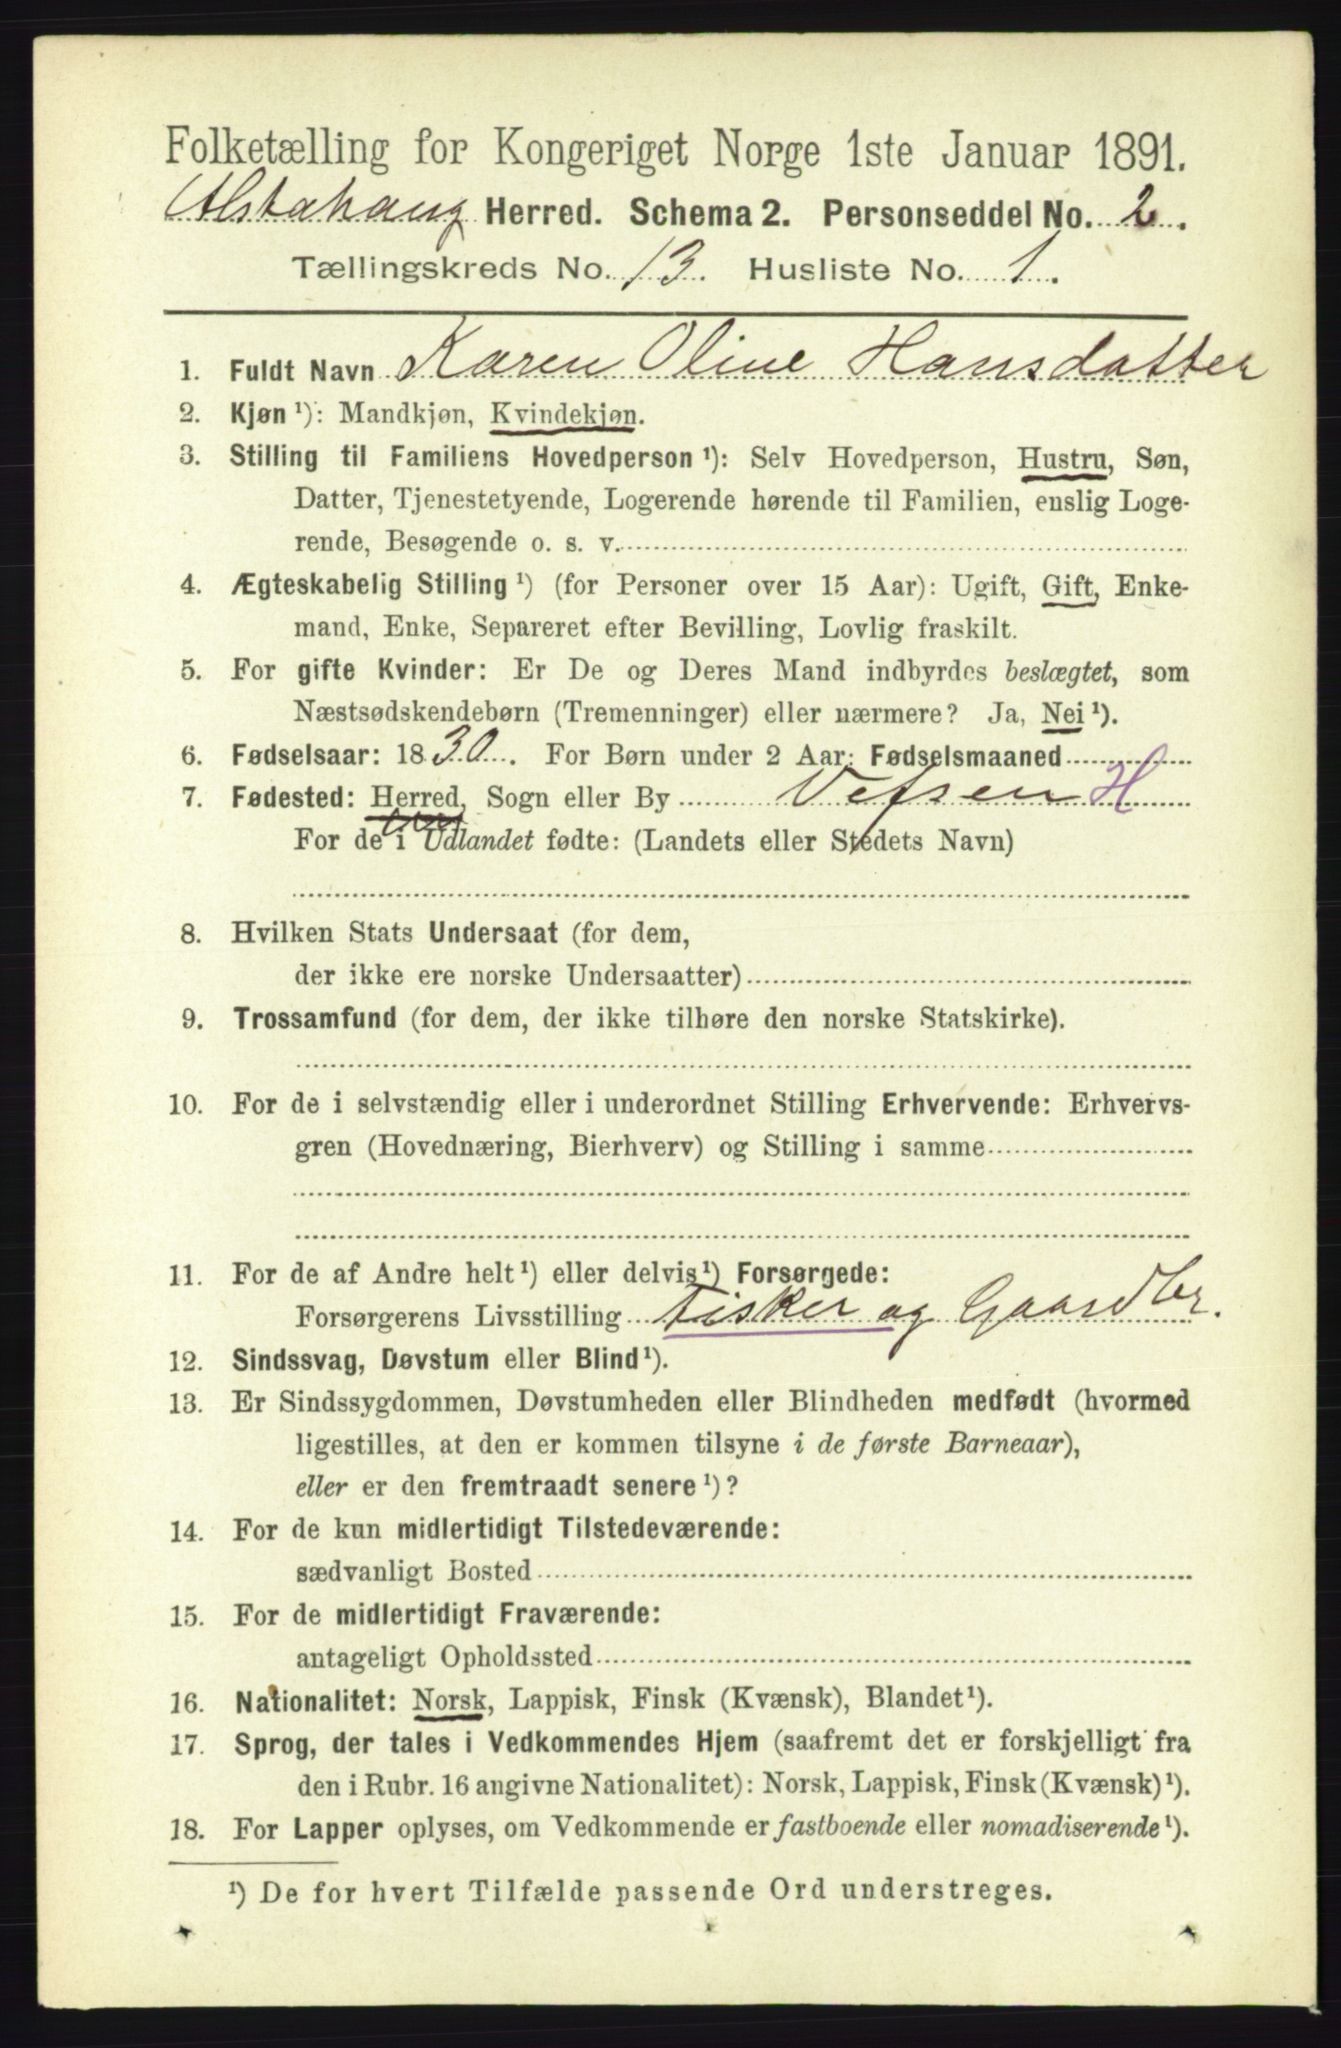 Folketælling for Kongeriget Norge 1ste Januar 1891.
Alstahaug Herred. Schema 2. Personseddel No. 2.
Tællingskreds No. 13. Husliste No. 1.
1. Fuldt Navn Karen Oline Hansdatter
2. Kjøn ¹): Mandkjøn, Kvindekjøn.
3. Stilling til Familiens Hovedperson ¹): Selv Hovedperson, Hustru, Søn,
Datter, Tjenestetyende, Logerende hørende til Familien, enslig Loge-
rende, Besøgende o. s. v.
4. Ægteskabelig Stilling ¹) (for Personer over 15 Aar): Ugift, Gift, Enke-
mand, Enke, Separeret efter Bevilling, Lovlig fraskilt.
5. For gifte Kvinder: Er De og Deres Mand indbyrdes beslægtet, som
Næstsødskendebørn (Tremenninger) eller nærmere? Ja, Nei ¹).
6. Fødselsaar: 1830. For Børn under 2 Aar: Fødselsmaaned
7. Fødested: Herred, Sogn eller By Vefsen H
For de i Udlandet fødte: (Landets eller Stedets Navn)
8. Hvilken Stats Undersaat (for dem,
der ikke ere norske Undersaatter)
9. Trossamfund (for dem, der ikke tilhøre den norske Statskirke).
10. For de i selvstændig eller i underordnet Stilling Erhvervende: Erhvervs-
gren (Hovednæring, Bierhverv) og Stilling i samme
11. For de af Andre helt ¹) eller delvis ¹) Forsørgede:
Forsørgerens Livsstilling Fisker og Gaardbr.
12. Sindssvag, Døvstum eller Blind ¹).
13. Er Sindssygdommen, Døvstumheden eller Blindheden medfødt (hvormed
ligestilles, at den er kommen tilsyne i de første Barneaar),
eller er den fremtraadt senere ¹)?
14. For de kun midlertidigt Tilstedeværende:
sædvanligt Bosted
15. For de midlertidigt Fraværende:
antageligt Opholdssted
16. Nationalitet: Norsk, Lappisk, Finsk (Kvænsk), Blandet ¹).
17. Sprog, der tales i Vedkommendes Hjem (saafremt det er forskjelligt fra
den i Rubr. 16 angivne Nationalitet): Norsk, Lappisk, Finsk (Kvænsk) ¹).
18. For Lapper oplyses, om Vedkommende er fastboende eller nomadiserende ¹).
¹) De for hvert Tilfælde passende Ord understreges.